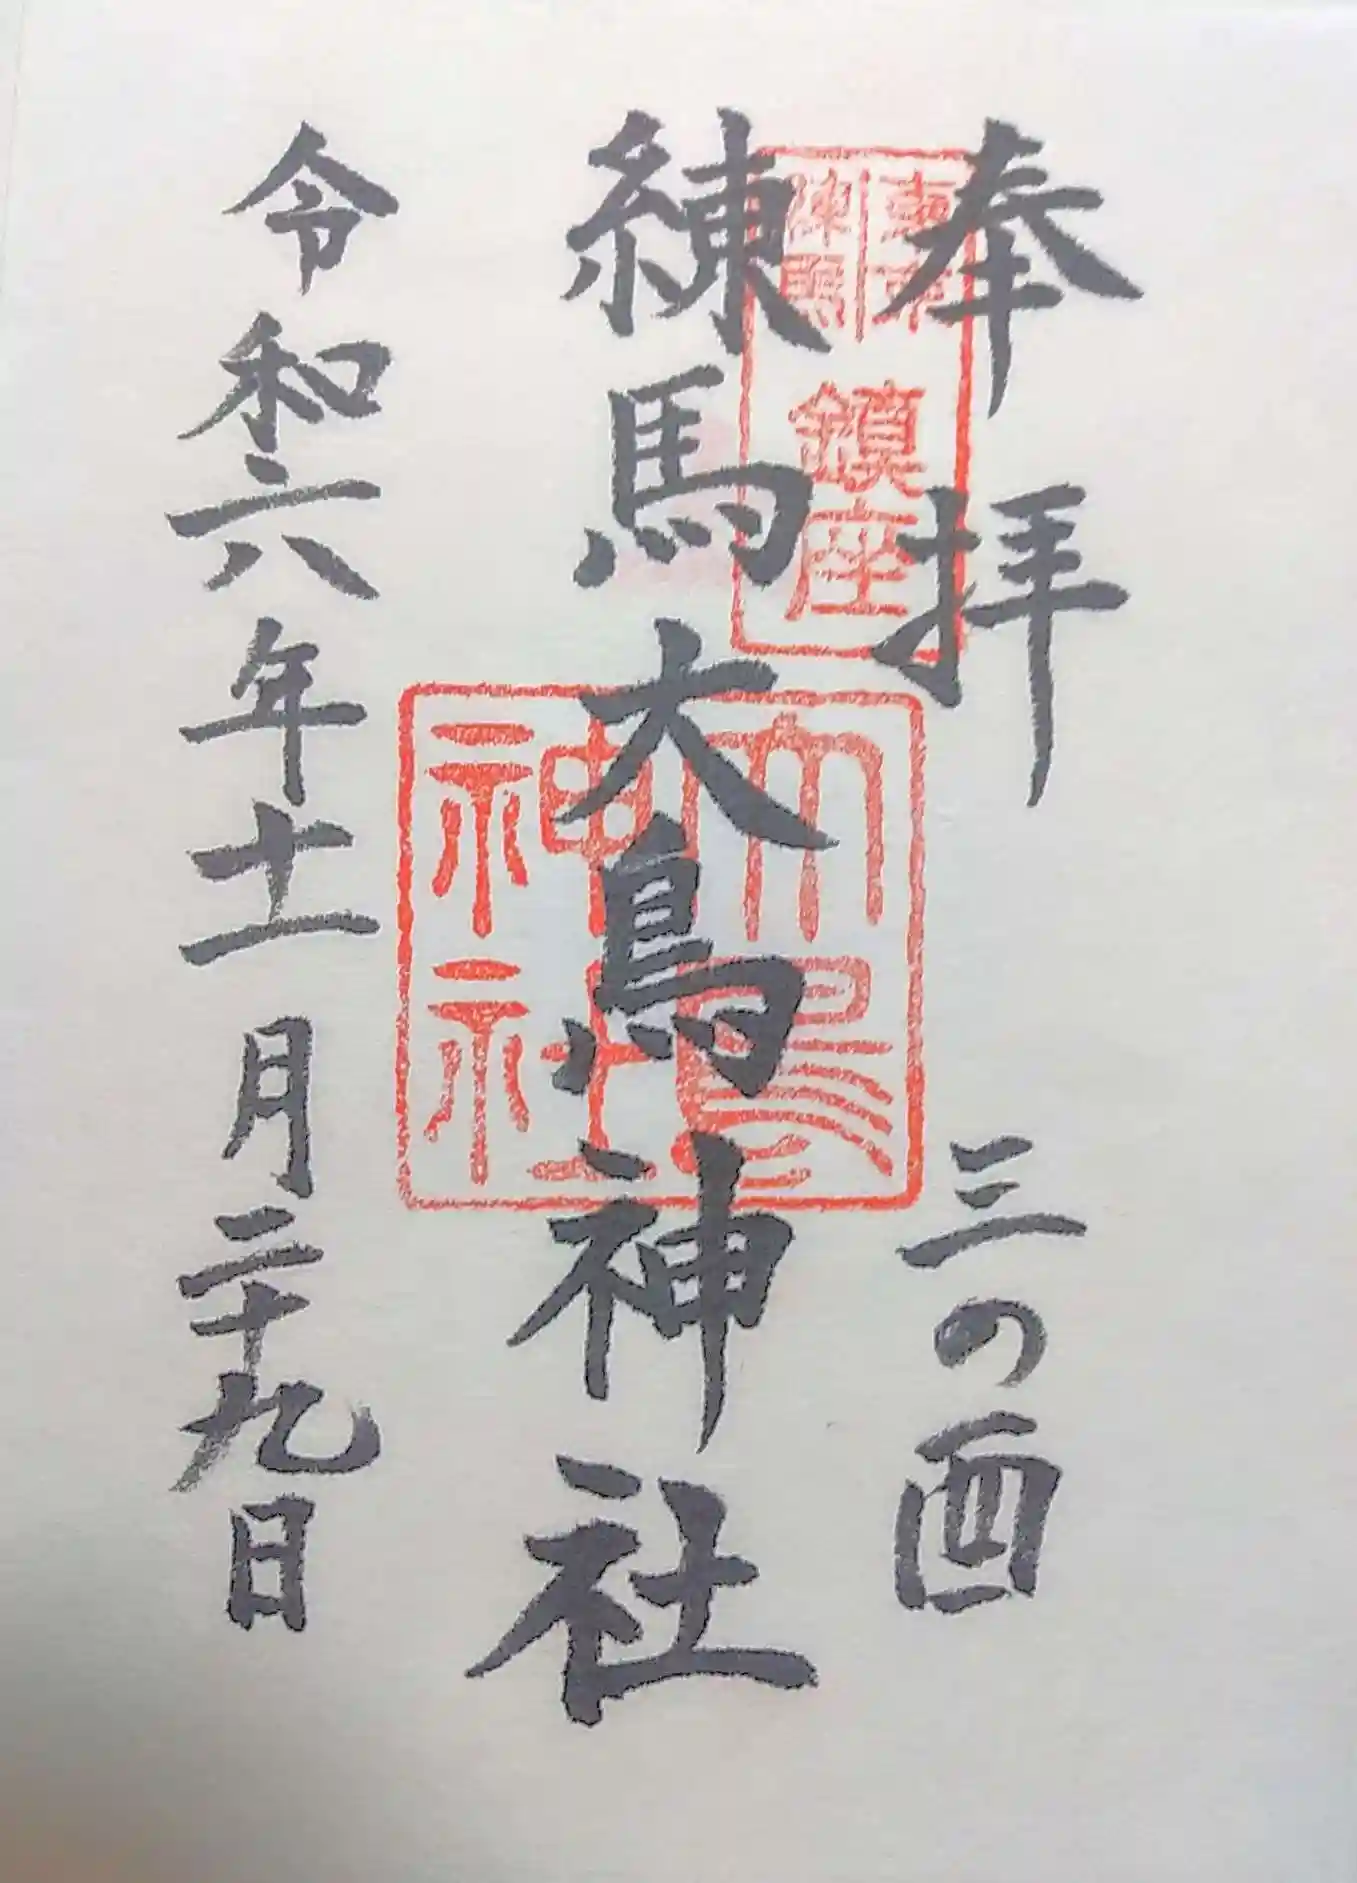 奉拝 三の酉
東京練馬
鎮座
練馬大鳥神社
大鳥神社
令和六年十一月二十九日